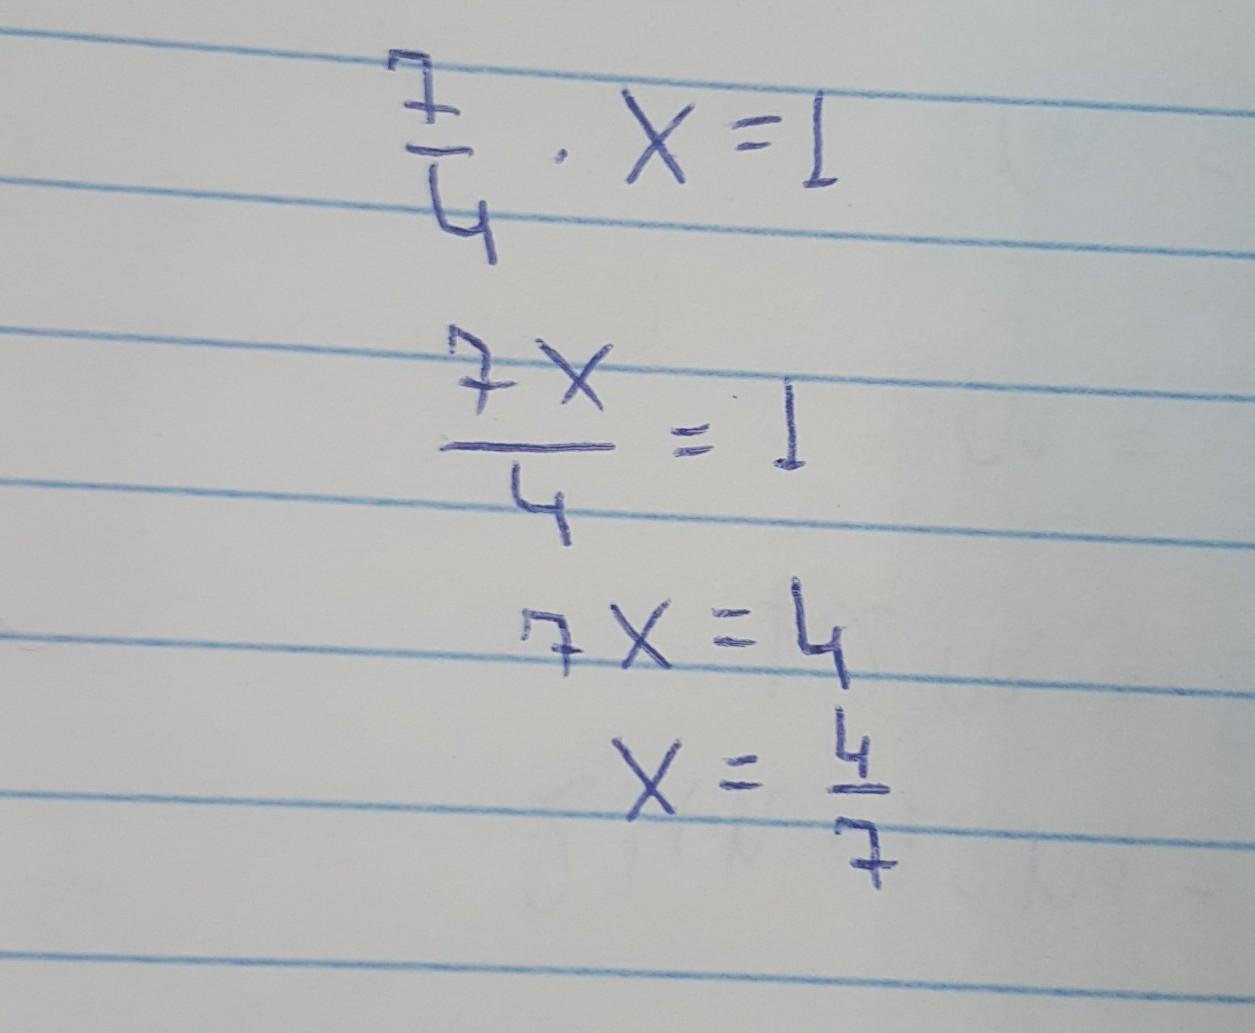 7/4 · X = 1
7X/4 = 1
7X = 4
X = 4/7